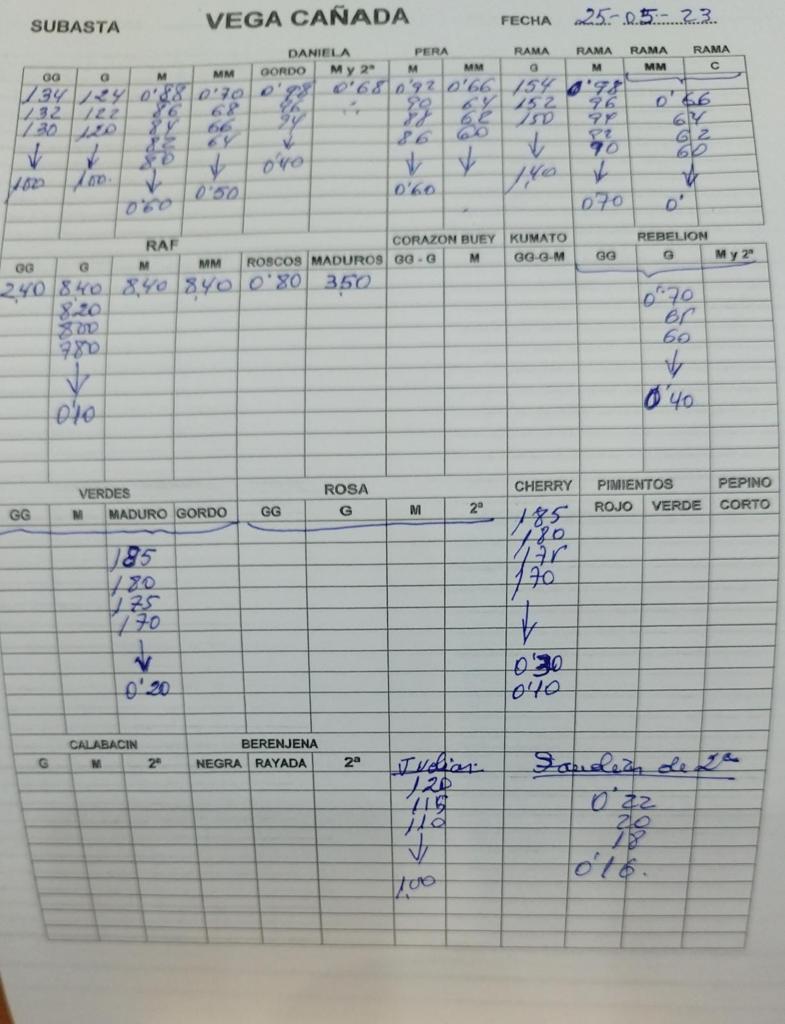 SUBASTA VEGA CAÑADA FECHA 25-05-23
DANIELA PERA RAMA RAMA RAMA RAMA
GG G M MM GORDO M y 2ª M MM G M MM C
134 124 0'88 0'70 0'98 0'68 0'92 0'66 154 0'98 0'66
132 122 86 68 96 90 64 152 96 64
130 120 84 66 94 88 62 150 94 62
↓ ↓ 82 64 ↓ 86 60 ↓ 92 60
100 100 80 ↓ 0'40 ↓ ↓ 1,40 90 ↓
↓ 0'50 0'60 ↓
0'60 070 0'
RAF CORAZON BUEY KUMATO REBELION
GG G M MM ROSCOS MADUROS GG - G M GG-G-M GG G M y 2ª
2,40 8,40 8,40 8,40 0'80 3,50 0'70
8,20 65
800 60
780 ↓
↓ 0'40
0'10
VERDES ROSA CHERRY PIMIENTOS PEPINO
GG M MADURO GORDO GG G M 2ª ROJO VERDE CORTO
185 185
180 180
175 175
170 170
↓ ↓
0'20 0'30
0'10
CALABACIN BERENJENA
G M 2ª NEGRA RAYADA 2ª Judias de 2ª
120 0'22
115 20
110 18
↓ 0'16.
1,00